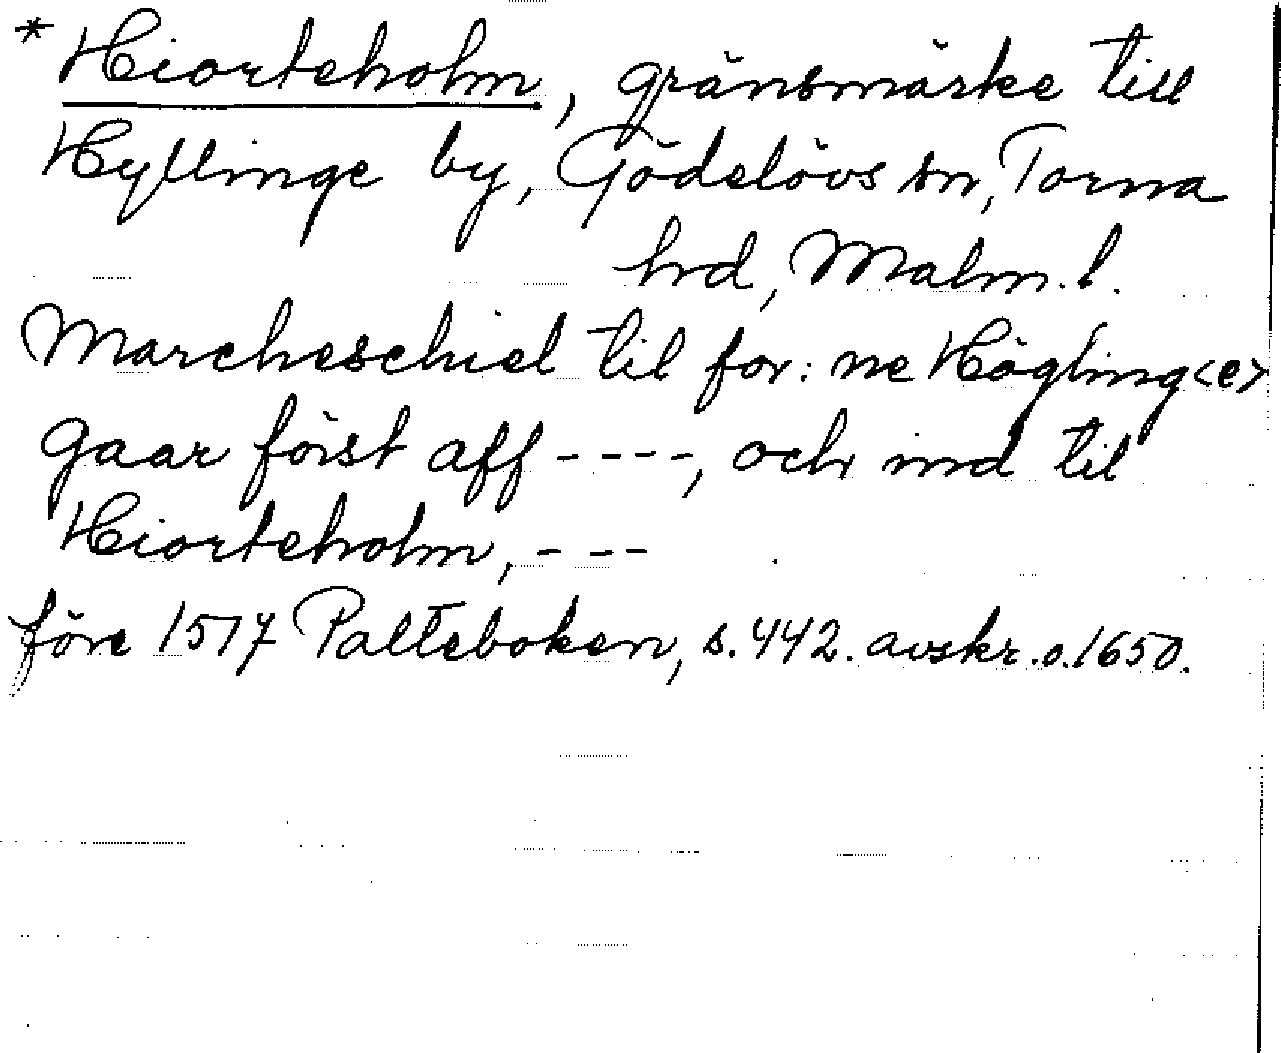 * Hiorteholm, gränsmärke till
Hyllinge by, Gödelövs sn, Torna
hrd, Malm. l.
Marcheschiel til for: ne Högling<e>
gaar först aff ----, och ind til
Hiorteholm, ---
före 1517 Palteboken, s. 442. avskr. o. 1650.